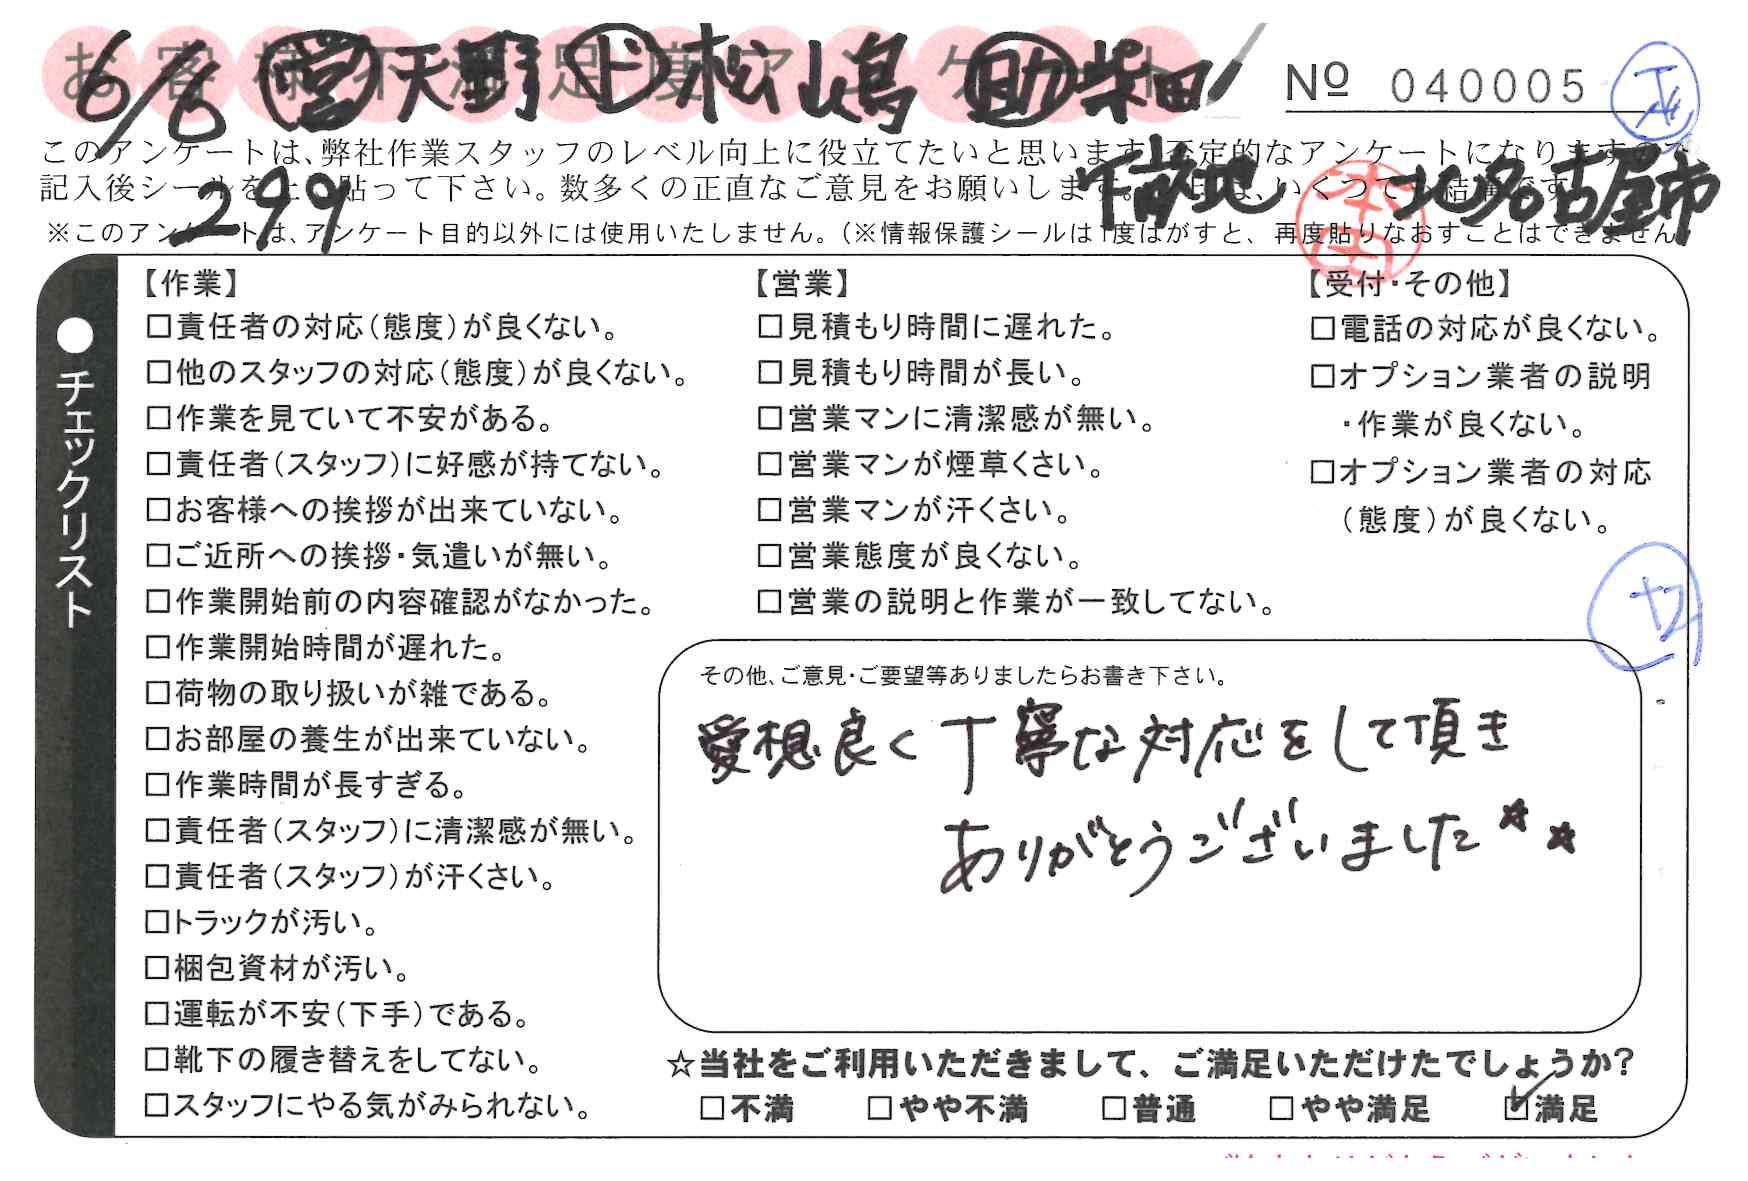 お客様不満足度アンケート
6/6 営 天野 ド 松嶋 助 柴田
№ 040005
このアンケートは、弊社作業スタッフのレベル向上に役立てたいと思います。否定的なアンケートになりますので
記入後シールを上に貼って下さい。数多くの正直なご意見をお願いします。
299
北名古屋市
※このアンケートは、アンケート目的以外には使用いたしません。(※情報保護シールは1度はがすと、再度貼りなおすことはできません
●チェックリスト
【作業】
□責任者の対応(態度)が良くない。
□他のスタッフの対応(態度)が良くない。
□作業を見ていて不安がある。
□責任者(スタッフ)に好感が持てない。
□お客様への挨拶が出来ていない。
□ご近所への挨拶・気遣いが無い。
□作業開始前の内容確認がなかった。
□作業開始時間が遅れた。
□荷物の取り扱いが雑である。
□お部屋の養生が出来ていない。
□作業時間が長すぎる。
□責任者(スタッフ)に清潔感が無い。
□責任者(スタッフ)が汗くさい。
□トラックが汚い。
□梱包資材が汚い。
□運転が不安(下手)である。
□靴下の履き替えをしてない。
□スタッフにやる気がみられない。
【営業】
□見積もり時間に遅れた。
□見積もり時間が長い。
□営業マンに清潔感が無い。
□営業マンが煙草くさい。
□営業マンが汗くさい。
□営業態度が良くない。
□営業の説明と作業が一致してない。
【受付・その他】
□電話の対応が良くない。
□オプション業者の説明
・作業が良くない。
□オプション業者の対応
(態度)が良くない。
その他、ご意見・ご要望等ありましたらお書き下さい。
愛想良く丁寧な対応をして頂き
ありがとうございました☆☆
☆当社をご利用いただきまして、ご満足いただけたでしょうか?
□不満 □やや不満 □普通 □やや満足 ☑満足